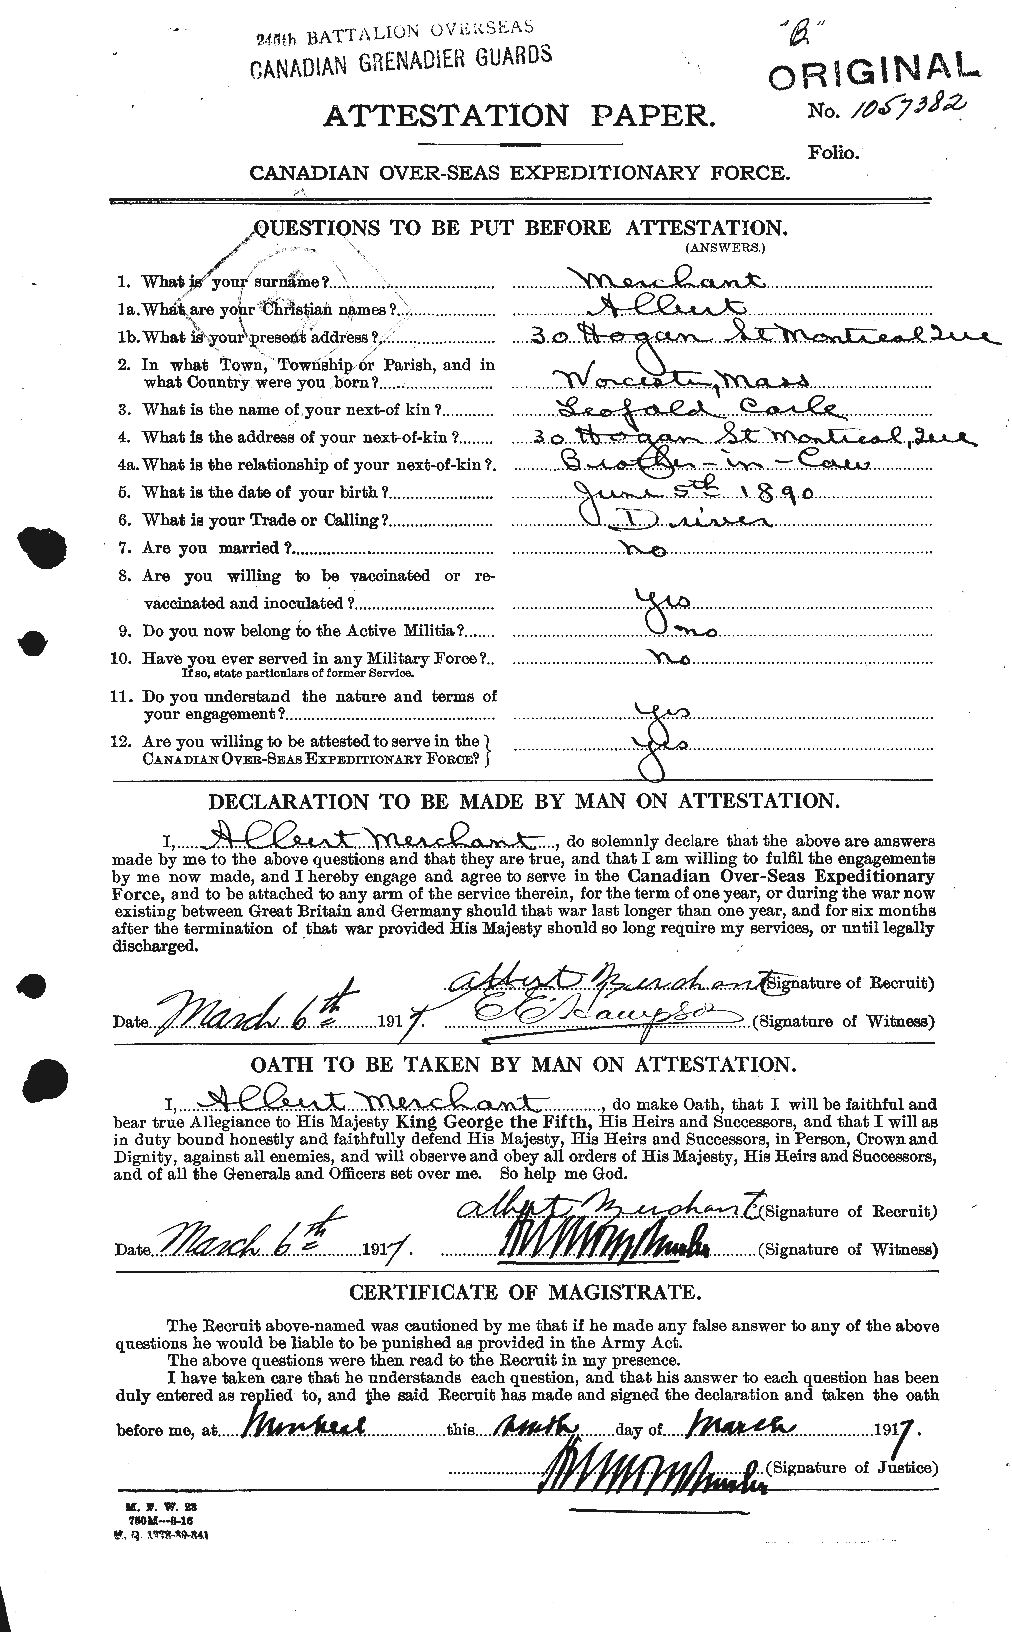 245th BATTALION OVERSEAS
CANADIAN GRENADIER GUARDS
"B"
ORIGINAL
ATTESTATION PAPER.
No. 1057382
Folio.
CANADIAN OVER-SEAS EXPEDITIONARY FORCE.
QUESTIONS TO BE PUT BEFORE ATTESTATION.
(ANSWERS.)
1. What is your surname? Merchant
1a. What are your Christian names? Albert
1b. What is your present address? 30 Hogan St Montreal, Que
2. In what Town, Township or Parish, and in
what Country were you born? Worcester, Mass
3. What is the name of your next-of kin? Leofald Carle
4. What is the address of your next-of-kin? 30 Hogan St Montreal, Que
4a. What is the relationship of your next-of-kin? Brother-in-Law
5. What is the date of your birth? June 5th 1890
6. What is your Trade or Calling? Driver
7. Are you married? no
8. Are you willing to be vaccinated or re-
vaccinated and inoculated? Yes
9. Do you now belong to the Active Militia? no
10. Have you ever served in any Military Force? No
If so, state particulars of former Service.
11. Do you understand the nature and terms of
your engagement? Yes
12. Are you willing to be attested to serve in the
CANADIAN OVER-SEAS EXPEDITIONARY FORCE? Yes
DECLARATION TO BE MADE BY MAN ON ATTESTATION.
I, Albert Merchant, do solemnly declare that the above are answers
made by me to the above questions and that they are true, and that I am willing to fulfil the engagements
by me now made, and I hereby engage and agree to serve in the Canadian Over-Seas Expeditionary
Force, and to be attached to any arm of the service therein, for the term of one year, or during the war now
existing between Great Britain and Germany should that war last longer than one year, and for six months
after the termination of that war provided His Majesty should so long require my services, or until legally
discharged.
Albert Merchant (Signature of Recruit)
Date March 6th 1917. E E Hampson (Signature of Witness)
OATH TO BE TAKEN BY MAN ON ATTESTATION.
I, Albert Merchant, do make Oath, that I will be faithful and
bear true Allegiance to His Majesty King George the Fifth, His Heirs and Successors, and that I will as
in duty bound honestly and faithfully defend His Majesty, His Heirs and Successors, in Person, Crown and
Dignity, against all enemies, and will observe and obey all orders of His Majesty, His Heirs and Successors,
and of all the Generals and Officers set over me. So help me God.
Albert Merchant (Signature of Recruit)
Date March 6th 1917. (Signature of Witness)
CERTIFICATE OF MAGISTRATE.
The Recruit above-named was cautioned by me that if he made any false answer to any of the above
questions he would be liable to be punished as provided in the Army Act.
The above questions were then read to the Recruit in my presence.
I have taken care that he understands each question, and that his answer to each question has been
duly entered as replied to, and the said Recruit has made and signed the declaration and taken the oath
before me, at Montreal this day of March 1917.
(Signature of Justice)
M. F. W. 23
750M—8-16
H. Q. 1772-39-841